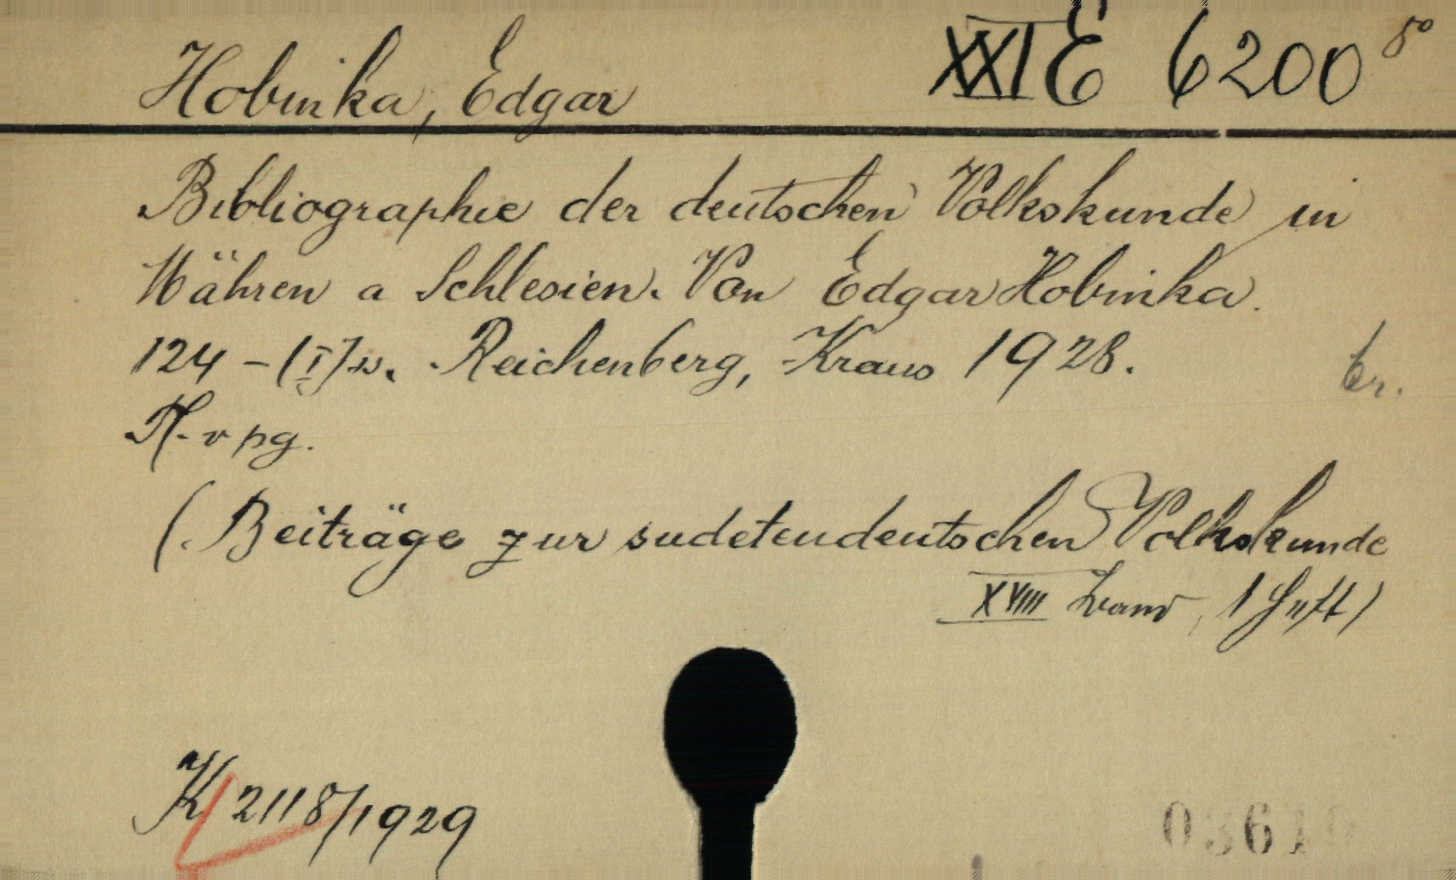 Hobinka, Edgar
XXI E 6200 8°
Bibliographie der deutschen Volkskunde in
Mähren a Schlesien. Von Edgar Hobinka.
124 - (I) s. Reichenberg, Kraus 1928.
br.
pg.
(Beiträge zur sudetendeutschen Volkskunde
XVIII Band, 1 Heft)
K 2118/1929